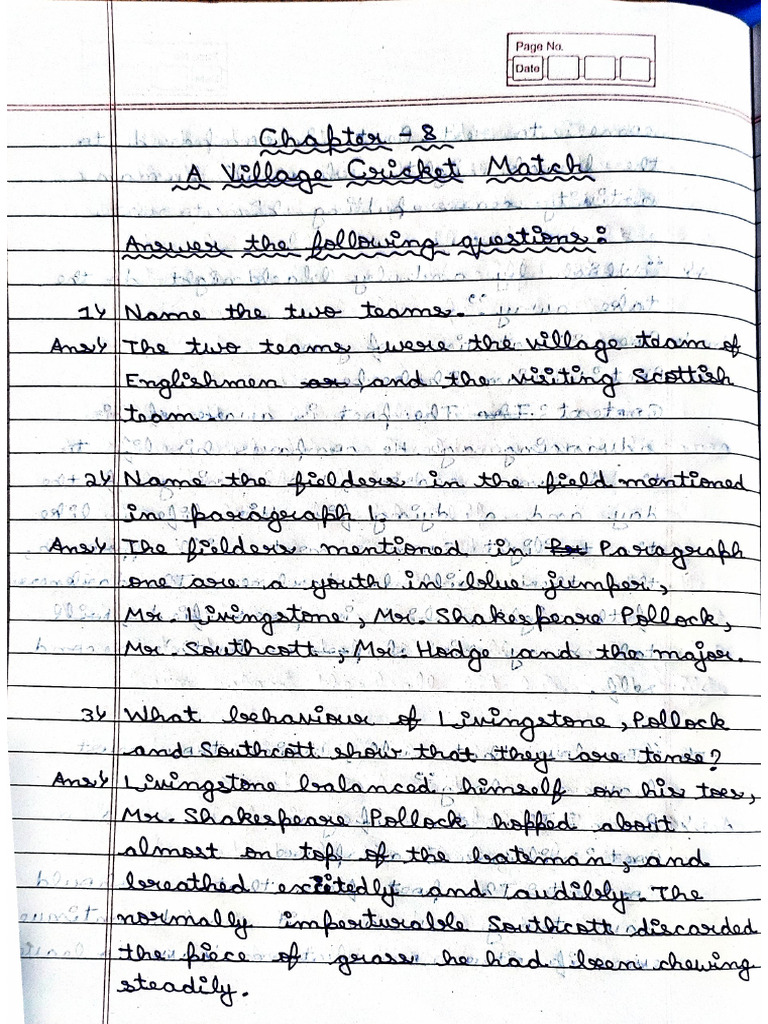 Page No.
Date
Chapter - 8
A Village Cricket Match
Answer the following questions:
1) Name the two teams.
Ans) The two teams were the village team of
Englishmen and the visiting Scottish
team.
2) Name the fielders in the field mentioned
in paragraph 1.
Ans) The fielders mentioned in Paragraph
one are a youth in blue jumper,
Mr. Livingstone, Mr. Shakespeare Pollock,
Mr. Southcott, Mr. Hodge and the major.
3) What behaviour of Livingstone, Pollock
and Southcott show that they are tense?
Ans) Livingstone balanced himself on his toes,
Mr. Shakespeare Pollock hopped about
almost on top of the batsman, and
breathed excitedly and audibly. The
normally imperturable Southcott discarded
the piece of grass he had been chewing
steadily.